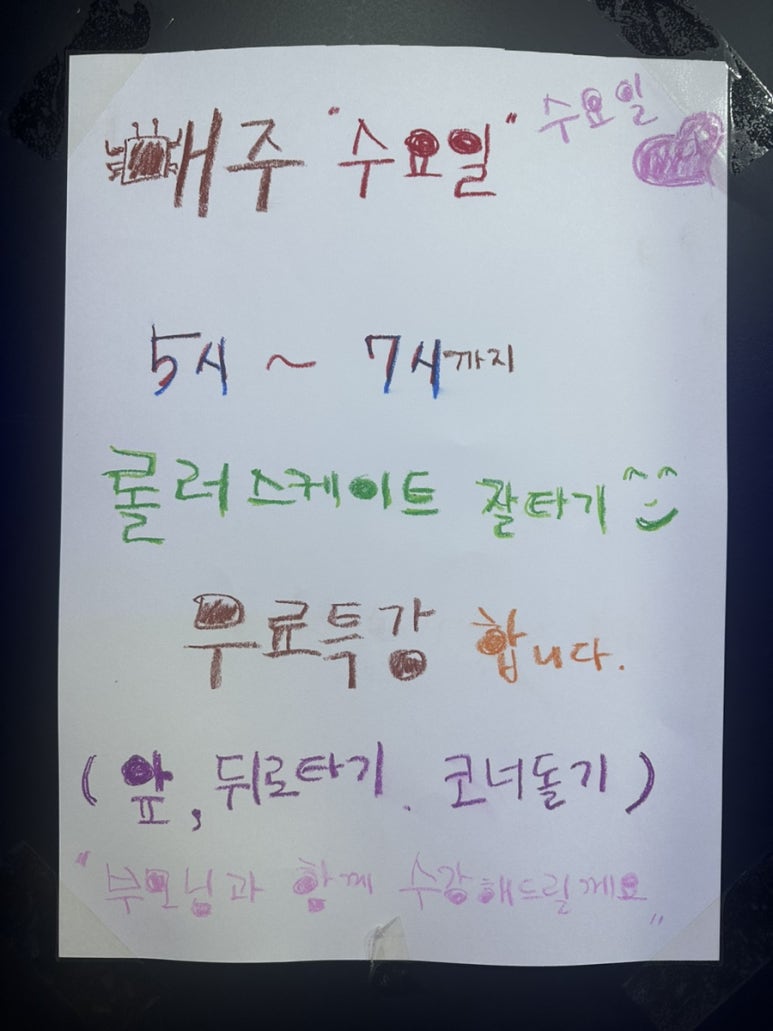 매주 "수요일" 수요일
5시 ~ 7시까지
롤러스케이트 잘타기
무료특강 합니다.
(앞, 뒤로타기. 코너돌기)
"부모님과 함께 수강해드릴께요"